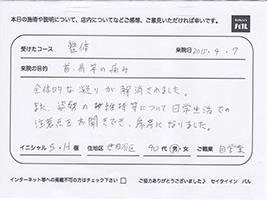 本日の施術や説明について、店内についてなどご感想、ご意見いただければ幸いです。
受けたコース 整体 来院日 2015.4.7
来院の目的 首・肩等の痛み
全体的な凝りが解消されました。
また、姿勢の維持等について日常生活での
注意点もお聞きでき、参考になりました。
イニシャル S・H 様 住地区 世田谷区 40代 男・女 ご職業 自営業
インターネット等への掲載不可の方はチェック下さい □ ご協力ありがとうございました♪ セイタイイン バル